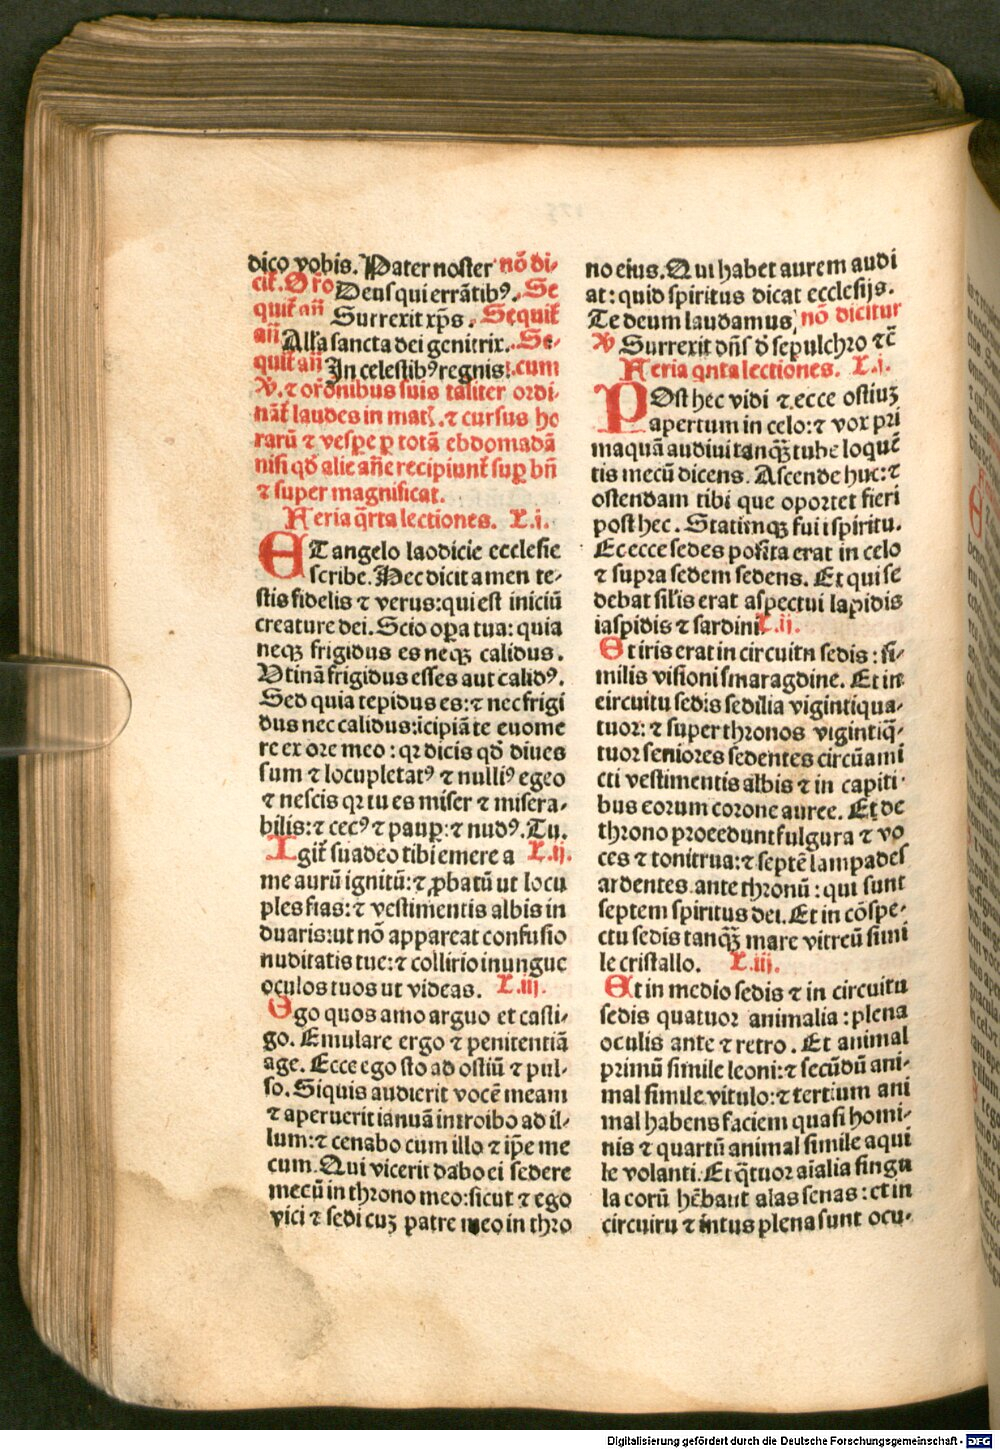 dico vobis. Pater noster nō di-
cit̄. Or̄o Deus qui errātibꝰ. Se
quit̄ an̄ Surrexit xp̄s. Sequit̄
an̄ Alła sancta dei genitrix. Se-
quit̄ an̄ In celestibꝰ regnis: cum
℣. ⁊ or̄onibus suis taliter ordi-
nāt̄ laudes in mat̄. ⁊ cursus ho
rarū ⁊ vesp̄e ꝑ totā ebdomadā
nisi qd̄ alie ān̄e recipiunt̄ suꝑ bn̄
⁊ super magnificat.
Feria q̄rta lectiones. L.i.
ET angelo laodicie ecclesie
scribe. Hec dicit amen te-
stis fidelis ⁊ verus: qui est iniciū
creature dei. Scio oꝑa tua: quia
neqꝫ frigidus es neqꝫ calidus.
Vtinā frigidus esses aut calidꝰ.
Sed quia tepidus es: ⁊ nec frigi
dus nec calidus: īcipiā te euome
re ex ore meo: qꝛ dicis qd̄ diues
sum ⁊ locupletatꝰ ⁊ nulliꝰ egeo
⁊ nescis qꝛ tu es miser ⁊ misera-
bilis: ⁊ cecꝰ ⁊ pauꝑ: ⁊ nudꝰ. Tu.
Igit̄ suadeo tibi emere a L.ij.
me aurū ignitū: ⁊ ꝓbatū ut locu
ples fias: ⁊ vestimentis albis in
duaris: ut nō appareat confusio
nuditatis tue: ⁊ collirio inungue
oculos tuos ut videas. L.iij.
Ego quos amo arguo et casti-
go. Emulare ergo ⁊ penitentiā
age. Ecce ego sto ad ostiū ⁊ pul-
so. Siquis audierit vocē meam
⁊ aperuerit ianuā introibo ad il-
lum: ⁊ cenabo cum illo ⁊ ip̄e me
cum. Qui vicerit dabo ei sedere
mecū in throno meo: sicut ⁊ ego
vici ⁊ sedi cuꝫ patre meo in thro
no eius. Qui habet aurem audi
at: quid spiritus dicat ecclesijs.
Te deum laudamus, nō dicitur
℣ Surrexit dn̄s d̄ sepulchro ⁊c̄
Feria qn̄ta lectiones. L.i.
POst hec vidi ⁊ ecce ostiuꝫ
apertum in celo: ⁊ vox pri
ma quā audiui tanqꝫ tube loquē
tis mecū dicens. Ascende huc: ⁊
ostendam tibi que oportet fieri
post hec. Statimqꝫ fui ī spiritu.
Ec ecce sedes posita erat in celo
⁊ supra sedem sedens. Et qui se
debat sil̄is erat aspectui lapidis
iaspidis ⁊ sardini. L.ij.
Et iris erat in circuitu sedis: si-
milis visioni smaragdine. Et in
circuitu sedis sedilia vigintiqua-
tuor: ⁊ super thronos vigintiq̄-
tuor seniores sedentes circūami
cti vestimentis albis ⁊ in capiti-
bus eorum corone auree. Et de
throno procedunt fulgura ⁊ vo
ces ⁊ tonitrua: ⁊ septē lampades
ardentes ante thronū: qui sunt
septem spiritus dei. Et in cōspe-
ctu sedis tanqꝫ mare vitreū simi
le cristallo. L.iij.
Et in medio sedis ⁊ in circuitu
sedis quatuor animalia: plena
oculis ante ⁊ retro. Et animal
primū simile leoni: ⁊ secūdū ani-
mal simile vitulo: ⁊ tertium ani
mal habens faciem quasi homi-
nis ⁊ quartū animal simile aqui
le volanti. Et q̄tuor aīalia singu
la eorū hēbant alas senas: et in
circuitu ⁊ intus plena sunt ocu-
Digitalisierung gefördert durch die Deutsche Forschungsgemeinschaft - DFG